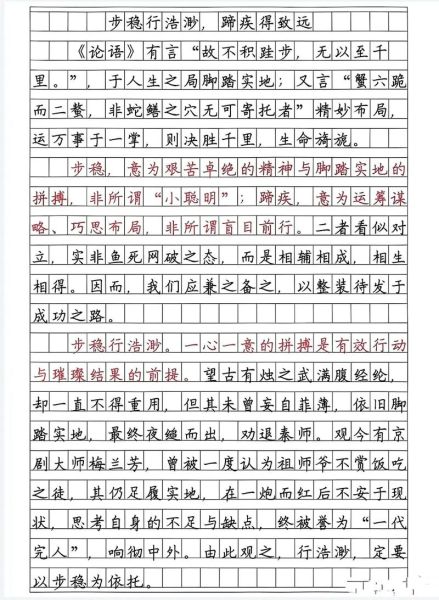 步稳行浩渺，蹄疾得致远
《论语》有言“故不积跬步，无以至千
里。”，于人生之局脚踏实地；又言“蟹六跪
而二螯，非蛇鳝之穴无可寄托者”精妙布局，
运万事于一掌，则决胜千里，生命旖旎。
步稳，意为艰苦卓绝的精神与脚踏实地的
拼搏，非所谓“小聪明”；蹄疾，意为运筹谋
略、巧思布局，非所谓盲目前行。二者看似对
立，实非鱼死网破之态，而是相辅相成，相生
相得。因而，我们应兼之备之，以整装待发于
成功之路。
步稳行浩渺。一心一意的拼搏是有效行动
与璀璨结果的前提。望古有烛之武满腹经纶，
却一直不得重用，但其未曾妄自菲薄，依旧脚
踏实地，最终夜缒而出，劝退秦师。观今有京
剧大师梅兰芳，曾被一度认为祖师爷不赏饭吃
之徒，其仍足履实地，在一炮而红后不安于现
状，思考自身的不足与缺点，终被誉为“一代
完人”，响彻中外。由此观之，行浩渺，定要
以步稳为依托。